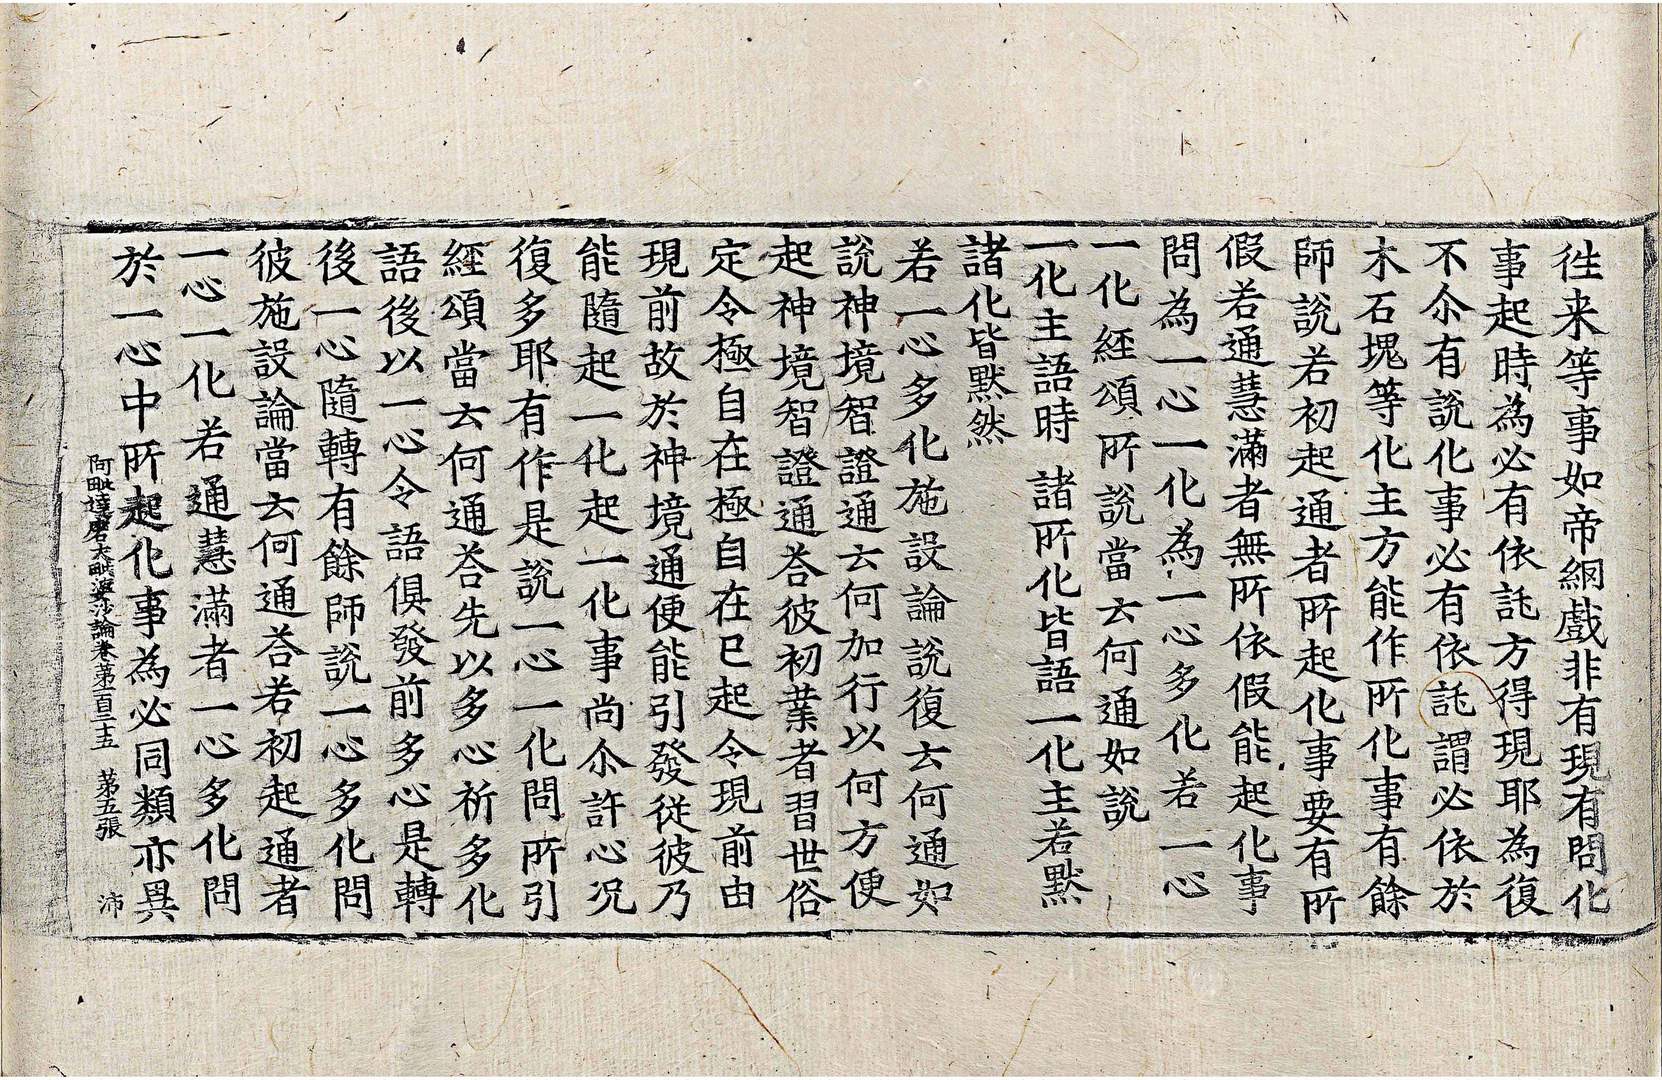 徃来等事如帝網戲非有現有問化
事起時為必有依託方得現耶為復
不尒有說化事必有依託謂必依於
木石塊等化主方能作所化事有餘
師說若初起通者所起化事要有所
假若通慧滿者無所依假能起化事
問為一心一化為一心多化若一心
一化經頌所說當去何通如說
一化主語時　諸所化皆語一化主若黙
諸化皆黙然
若一心多化施設論說復去何通如
說神境智證通去何加行以何方便
起神境智證通荅彼初業者習世俗
定令極自在極自在已起令現前由
現前故於神境通便能引發從彼乃
能隨起一化起一化事尚尒許心况
復多耶有作是說一心一化問所引
經頌當去何通荅先以多心祈多化
語後以一心令語俱發前多心是轉
後一心隨轉有餘師說一心多化問
彼施設論當去何通荅若初起通者
一心一化若通慧滿者一心多化問
於一心中所起化事為必同類亦異
阿毗達磨大毗婆沙論卷第一百三十五　第五張　沛